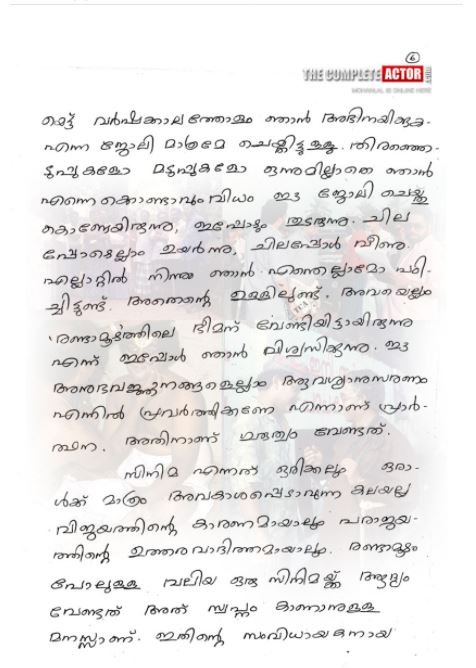 6
THE COMPLETE ACTOR .COM
MOHANLAL IS ONLINE HERE
യെട്ട് വർഷക്കാലത്തോളം ഞാൻ അഭിനയിക്കുക
എന്ന ജോലി മാത്രമേ ചെയ്തിട്ടുള്ളൂ. തിരഞ്ഞെ-
ടുപ്പുകളോ മടുപ്പുകളോ ഒന്നുമില്ലാതെ ഞാൻ
എന്നെ കൊണ്ടാവും വിധം ഈ ജോലി ചെയ്തു
കൊണ്ടേയിരുന്നു, ഇപ്പോഴും തുടരുന്നു. ചില
പ്പോഴെല്ലാം ഉയർന്നു, ചിലപ്പോൾ വീണു.
എല്ലാറ്റിൽ നിന്നും ഞാൻ എന്തെല്ലാമോ പഠി-
ച്ചിട്ടുണ്ട്. അതെന്റെ ഉള്ളിലുണ്ട്. അവയെല്ലാം
'രണ്ടാമൂഴ'ത്തിലെ ഭീമന് വേണ്ടിയിട്ടായിരുന്നു
എന്ന് ഇപ്പോൾ ഞാൻ വിശ്വസിക്കുന്നു. ഈ
അനുഭവജ്ഞാനങ്ങളെല്ലാം ആവശ്യാനുസരണം
എന്നിൽ പ്രവർത്തിക്കണേ എന്നാണ് പ്രാർ-
ത്ഥന. അതിനാണ് ഗുരുത്വം വേണ്ടത്.
സിനിമ എന്നത് ഒരിക്കലും ഒരാ-
ൾക്ക് മാത്രം അവകാശപ്പെടാവുന്ന കലയല്ല
വിജയത്തിന്റെ കാരണമായാലും പരാജയ-
ത്തിന്റെ ഉത്തരവാദിത്തമായാലും. രണ്ടാമൂഴം
പോലുള്ള വലിയ ഒരു സിനിമയ്ക്ക് ആദ്യം
വേണ്ടത് അത് സ്വപ്നം കാണാനുള്ള
മനസ്സാണ്. ഇതിന്റെ സംവിധായകനായ